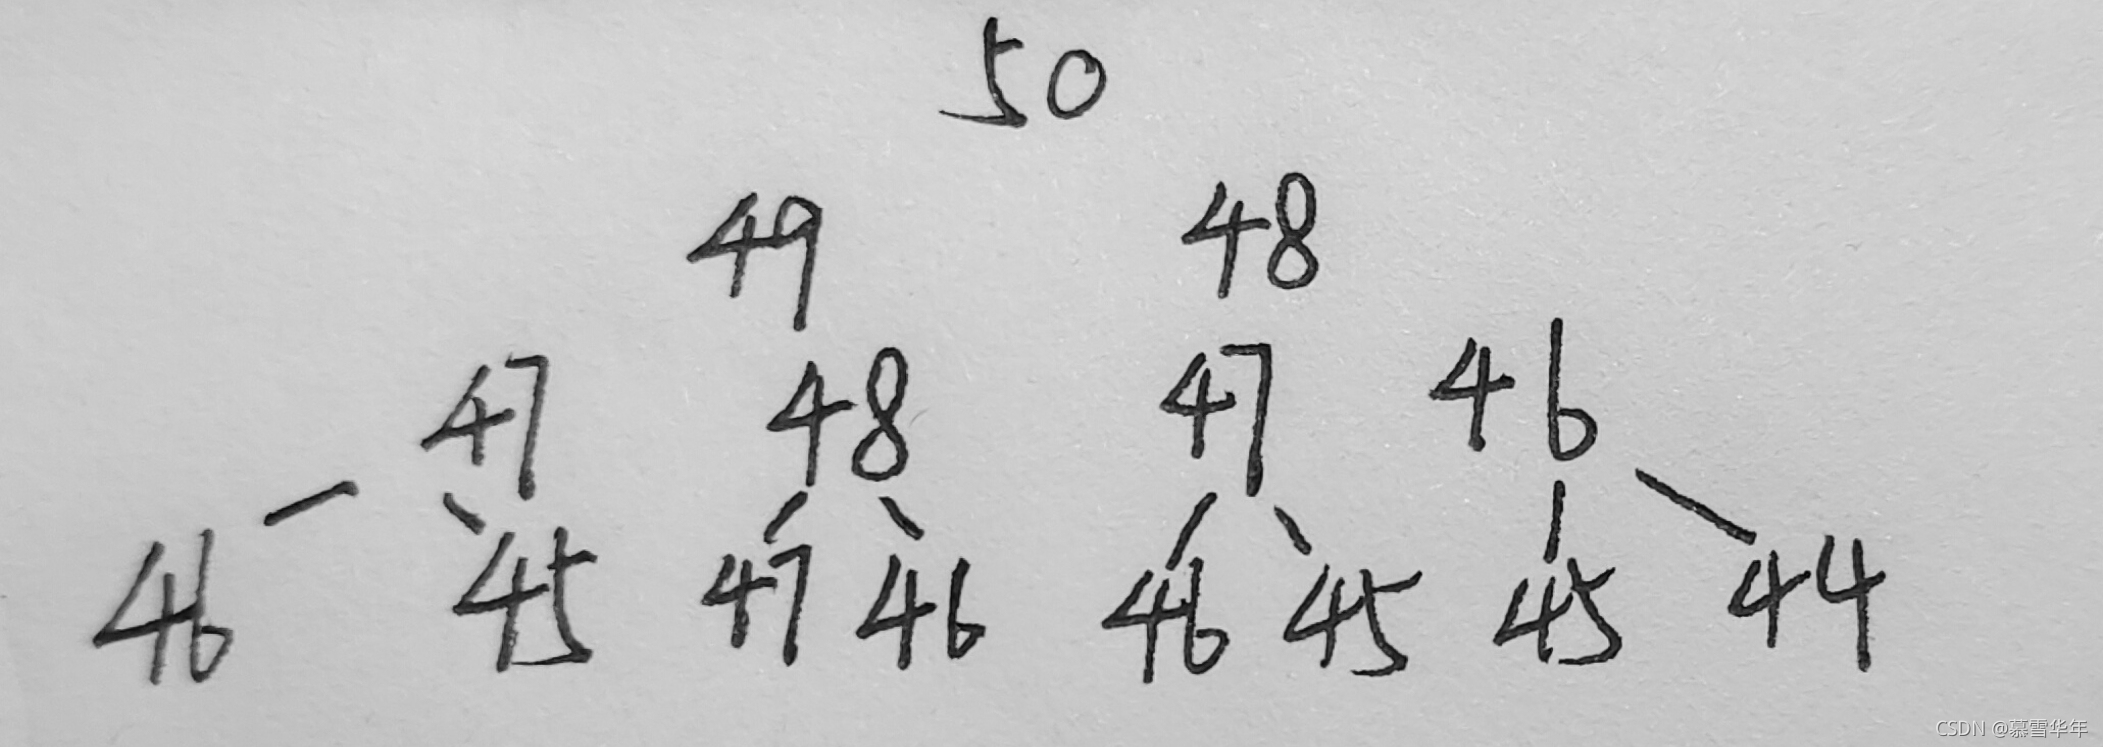 50
49 48
47 48 47 46
46 45 47 46 46 45 45 44
CSDN @慕雪华年